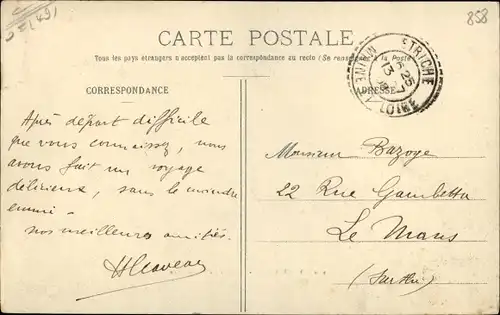 858
CARTE POSTALE
Tous les pays étrangers n'acceptent pas la correspondance au recto (Se renseigner à la Poste)
CORRESPONDANCE
ADRESSE
ETRICHE
Après départ difficile
que vous connaissez, nous
avons fait un voyage
délicieux, sans le moindre
ennui -
nos meilleures amitiés.
Monsieur Bazoge
22 Rue Gambetta
Le Mans
(Sarthe)